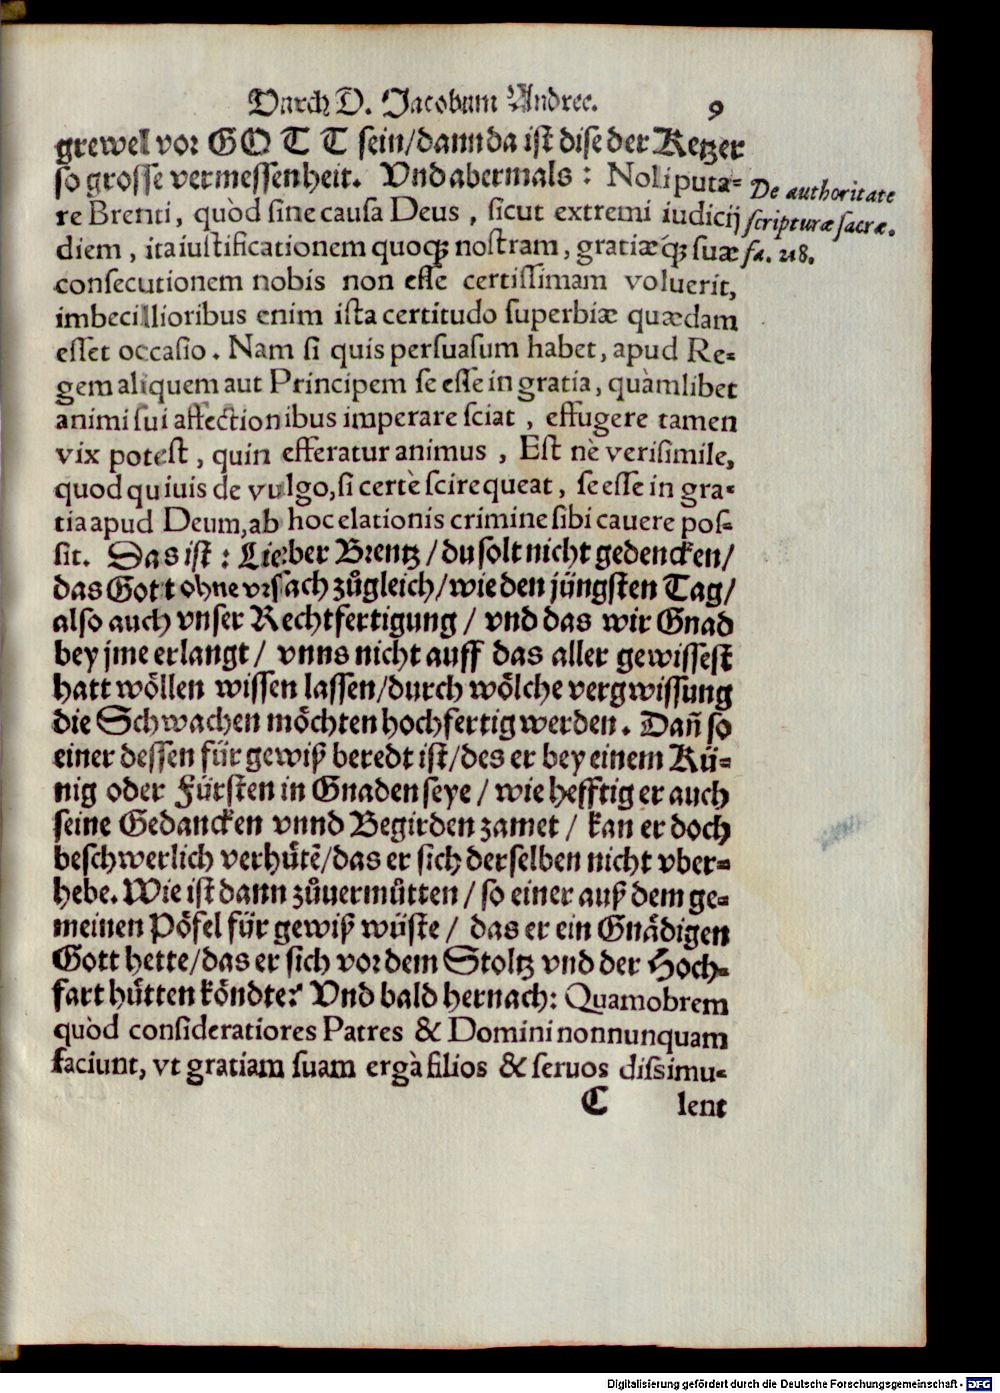 Durch D. Jacobum Andree. 9
grewel vor GOTT sein/dann da ist dise der Ketzer
so grosse vermessenheit. Vnd abermals: Noli puta-
De authoritate
re Brenti, quòd sine causa Deus, sicut extremi iudicij
scripturæ sacræ.
diem, ita iustificationem quoq; nostram, gratiæq́; suæ
fa. 218.
consecutionem nobis non esse certissimam voluerit,
imbecillioribus enim ista certitudo superbiæ quædam
esset occasio. Nam si quis persuasum habet, apud Re-
gem aliquem aut Principem se esse in gratia, quàmlibet
animi sui affectionibus imperare sciat, effugere tamen
vix potest, quin efferatur animus, Est nè verisimile,
quod quiuis de vulgo, si certè scire queat, se esse in gra-
tia apud Deum, ab hoc elationis crimine sibi cauere pos-
sit. Das ist: Lieber Brentz/du solt nicht gedencken/
das Gott ohne vrsach zůgleich/wie den jüngsten Tag/
also auch vnser Rechtfertigung/ vnd das wir Gnad
bey jme erlangt/ vnns nicht auff das aller gewissest
hatt wöllen wissen lassen/durch wölche vergwissung
die Schwachen möchten hochfertig werden. Dañ so
einer dessen für gewiß beredt ist/des er bey einem Kü-
nig oder Fürsten in Gnaden seye/ wie hefftig er auch
seine Gedancken vnnd Begirden zamet/ kan er doch
beschwerlich verhůtē/das er sich derselben nicht vber-
hebe. Wie ist dann zůuermůtten/ so einer auß dem ge-
meinen Pöfel für gewiß wüste/ das er ein Gnädigen
Gott hette/das er sich vor dem Stoltz vnd der Hoch-
fart hůtten köndte? Vnd bald hernach: Quamobrem
quòd consideratiores Patres & Domini nonnunquam
faciunt, vt gratiam suam ergà filios & seruos dissimu-
C lent
Digitalisierung gefördert durch die Deutsche Forschungsgemeinschaft - DFG